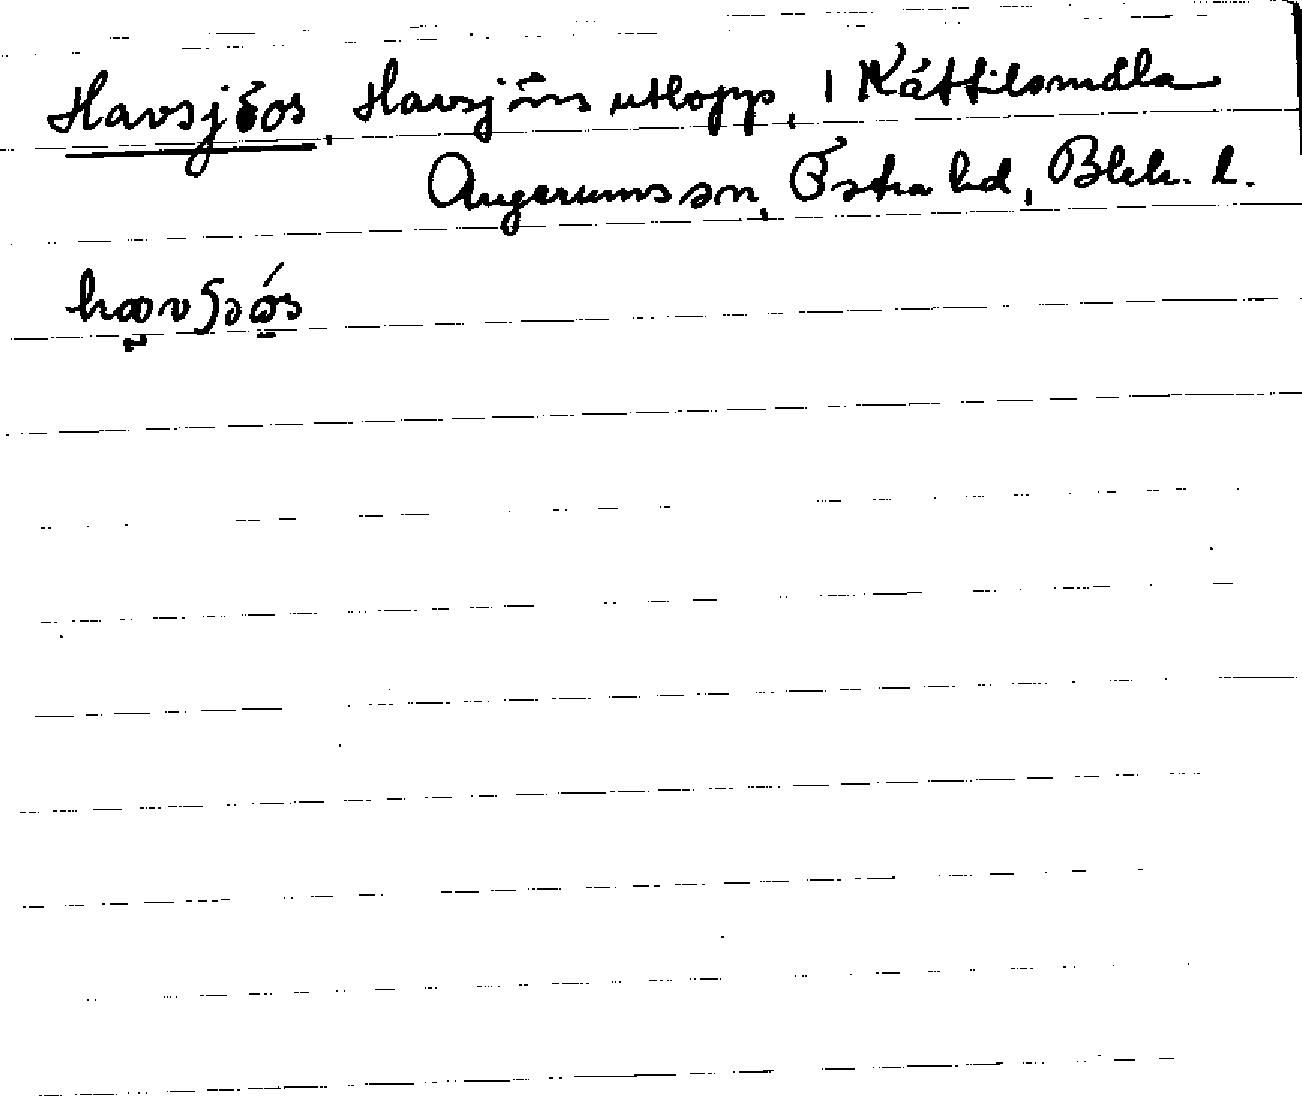 Havsjöos, Havsjöns utlopp, i Kättilsmåla
Augerums sn, Östra hd, Blek. l.